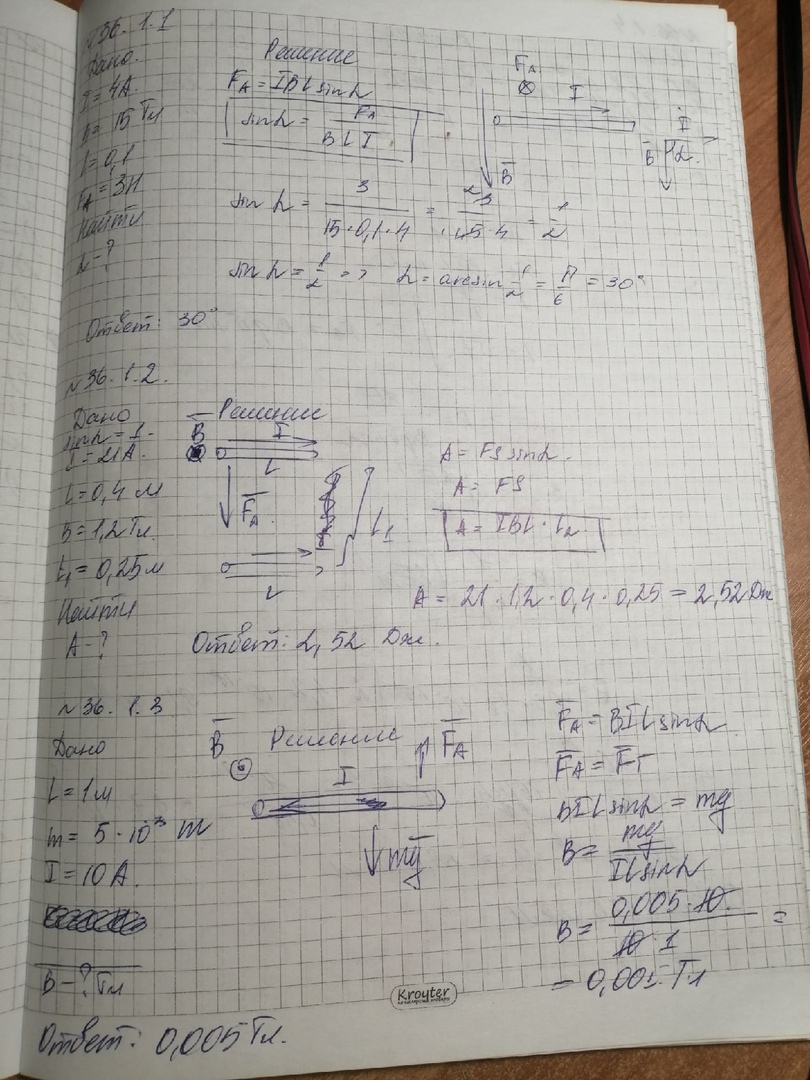 №36.1.1
Дано:
I = 4А
B = 15 Тл
l = 0,1
F_A = 3Н
Найти
α - ?
Решение
F_A = IBL sin α
sin α = F_A / BLI
sin α = 3 / 15·0,1·4 = = 1/2
sin α = 1/2 => α = arcsin 1/2 = π/6 = 30°
F_A
I
B
I
B α
Ответ: 30°
№36.1.2.
Дано
sin α = 1
I = 21А.
L = 0,4 м
B = 1,2 Тл.
L₁ = 0,25 м
Найти
A - ?
Решение
B I
L
F_A.
L₁
L
A = FS sin α.
A = FS
A = IBL · L₂
A = 21 · 1,2 · 0,4 · 0,25 = 2,52 Дж
Ответ: 2,52 Дж.
№36.1.3
Дано
L = 1 м
m = 5 · 10⁻³ m
I = 10 А.
B - ? Тл
Решение
B
F_A
I
mg
F_A = BIL sin α
F_A = F_T
BIL sin α = mg
B = mg / IL sin α
B = 0,005·10 / 10·1 =
= 0,005 Тл
Kroyter
Ответ: 0,005 Тл.